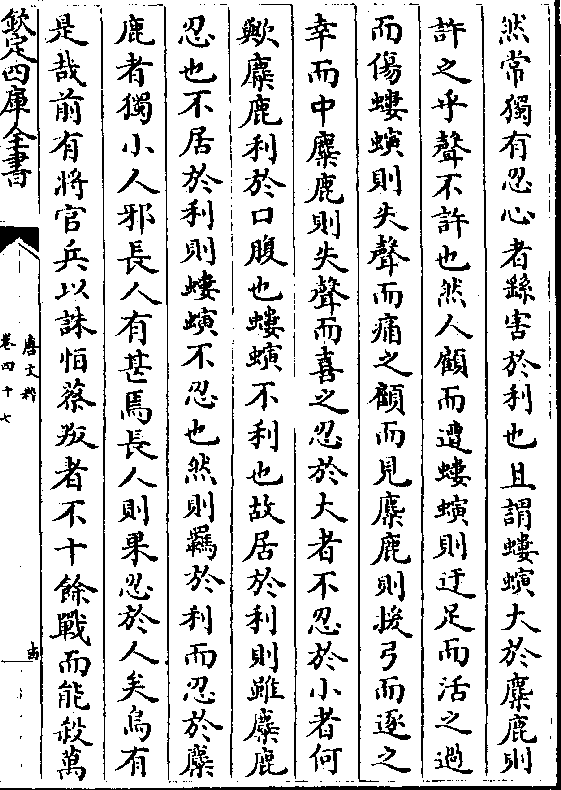 然常獨有忍心者繇害於利也且謂螻螾大於麋鹿則
許之乎聲不許也然人顧而遭螻螾則迂足而活之過
而傷螻螾則失聲而痛之顧而見麋鹿則援弓而逐之
幸而中麋鹿則失聲而喜之忍於大者不忍於小者何
歟麋鹿利於口腹也螻螾不利也故居於利則雖麋鹿
忍也不居於利則螻螾不忍也然則羈於利而忍於麋
鹿者獨小人邪長人有甚焉長人則果忍於人矣烏有
是哉前有將官兵以誅怕蔡叛者不十餘戰而能殺萬
欽定四庫全書
唐文粹
卷四十七